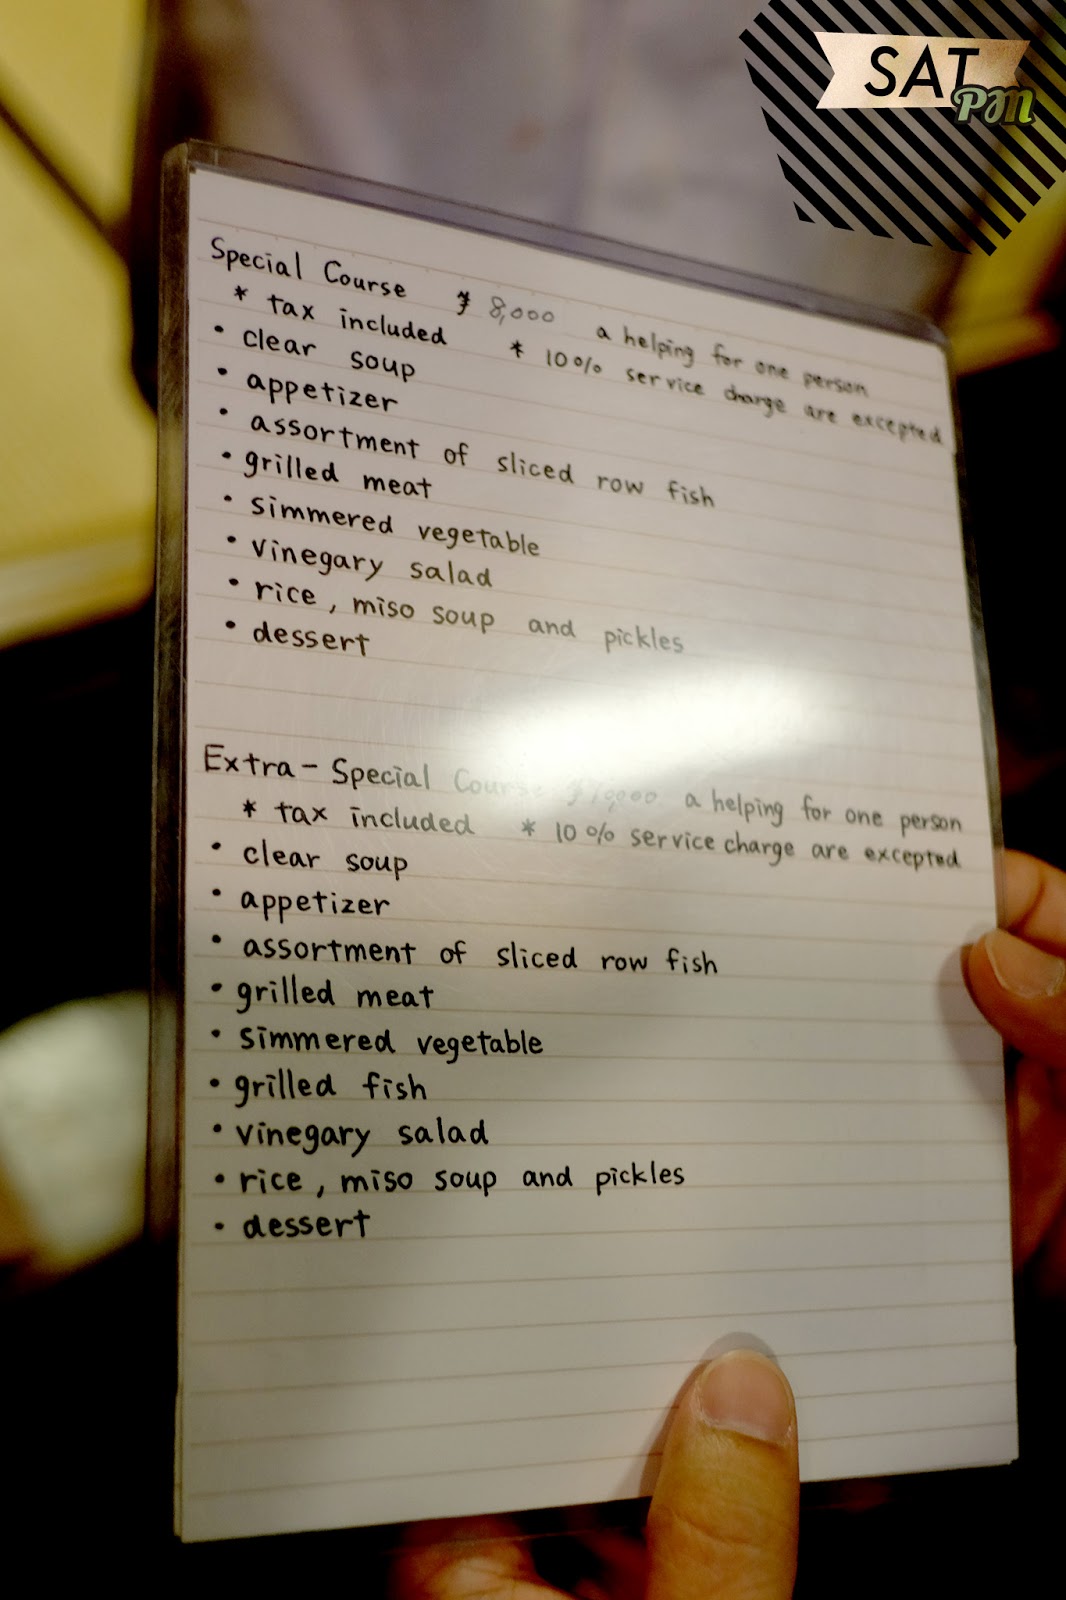 SAT
PM
Special Course ¥ 8,000 a helping for one person
* tax included * 10% service charge are excepted
• clear soup
• appetizer
• assortment of sliced row fish
• grilled meat
• simmered vegetable
• vinegary salad
• rice, miso soup and pickles
• dessert
Extra-Special Course ¥10,000 a helping for one person
* tax included * 10% service charge are excepted
• clear soup
• appetizer
• assortment of sliced row fish
• grilled meat
• simmered vegetable
• grilled fish
• vinegary salad
• rice, miso soup and pickles
• dessert